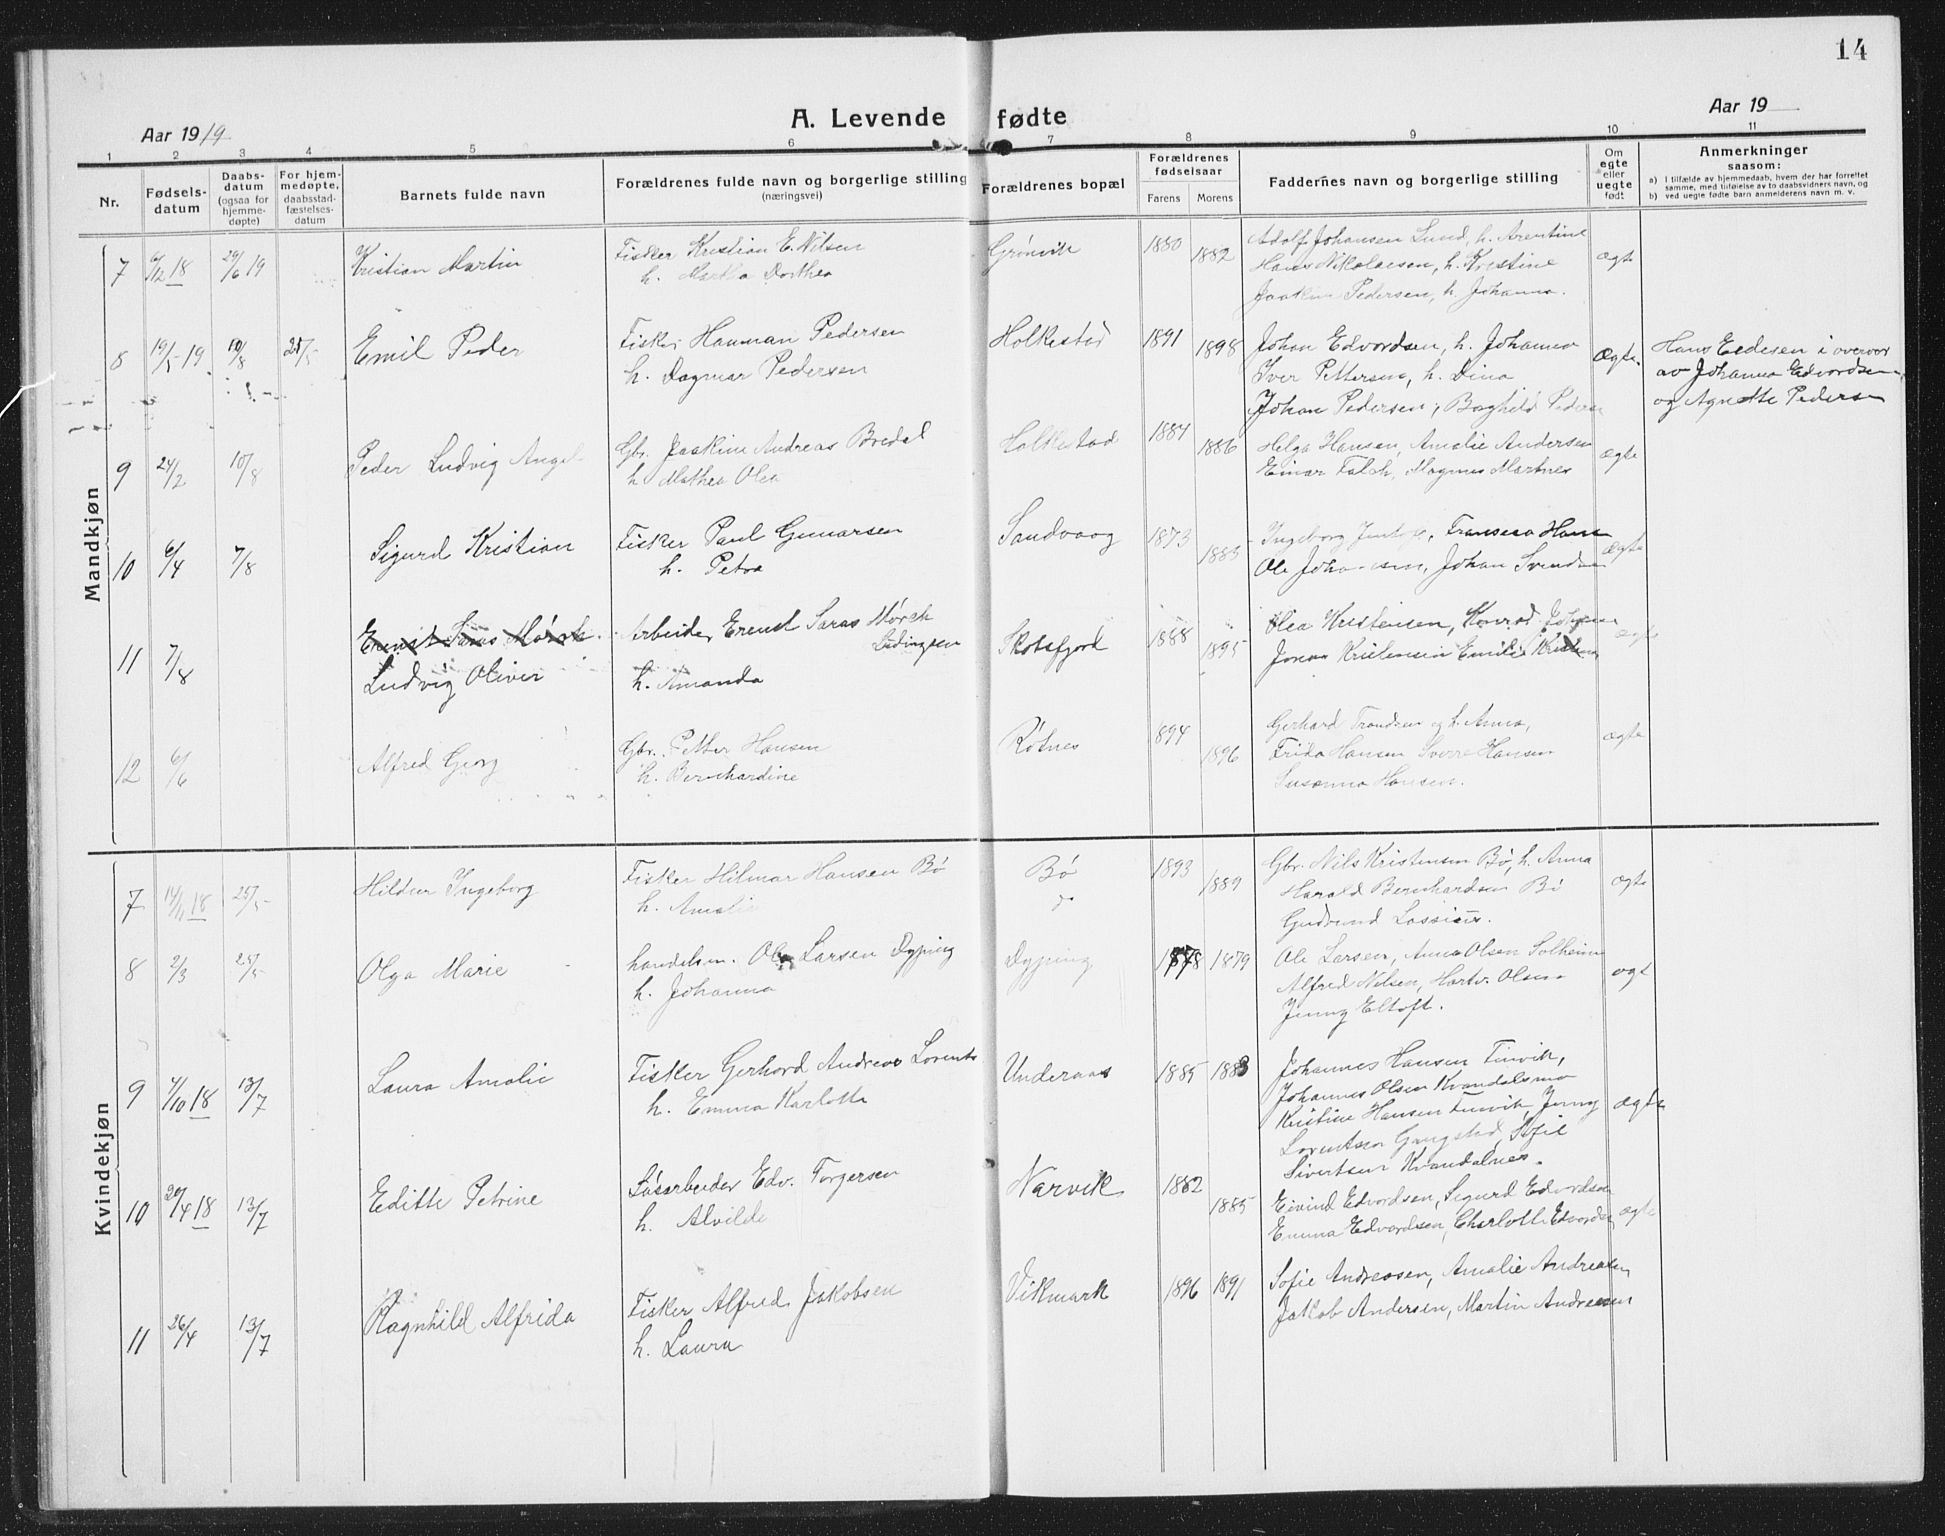 14
Aar 1919
A. Levende fødte
Aar 19
1 2 3 4 5 6 7 8 9 10 11
Nr.
Fødsels-
datum
Daabs-
datum
(ogsaa for
hjemme-
døpte)
For hjem-
medøpte,
daabsstad-
fæstelses-
datum
Barnets fulde navn
Forældrenes fulde navn og borgerlige stilling
(næringsvei)
Forældrenes bopæl
Forældrenes
fødselsaar
Farens Morens
Faddernes navn og borgerlige stilling
Om
egte
eller
uegte
født
Anmerkninger
saasom:
a) I tilfælde av hjemmedaab, hvem der har forrettet
samme, med tilføielse av to daabsvidners navn, og
b) ved uegte fødte barn anmelderens navn m. v.
Mandkjøn
7 6/12 18 29/6 19 Kristian Martin
Fisker Kristian E. Nilsen
h. Martha Dorthea
Grønvik 1880 1882
Adolf Johansen Lund, h. Arentine
Hans Nikolaisen, h. Kristine
Joakim Pedersen, h. Johanna.
ægte
8 19/5 19. 10/8 25/5 Emil Peder
Fisker Hanman Pedersen
h. Dagmar Pedersen
Holkestad 1891 1898
Johan Edvardsen, h. Johanna
Iver Pettersen, h. Dina
Johan Pedersen, Baghild Peders
Ægte.
Hans Eedesen i overvær
av Johanna Edvardsen
og Agnette Pedersen
9 24/2 10/8 Peder Ludvig Angel
Gbr. Joakim Andreas Bredal
h Mathea Olea
Holkestad 1884 1886
Helga Hansen, Amalie Andersen
Einar Falch, Magnus Martnes
ægte
10 6/4 7/8 Sigurd Kristian
Fisker Paul Gunarsen
h. Petra
Sandvaag 1873 1883
Ingeborg, Fransesa Hans
Ole, Johan Svends
ægte
11 7/8 Erenst Saras Mørch.
Ludvig Oliver
Arbeider Erenst Saras Mørch
h. Amanda
Skotsfjord 1888 1895
Olea Kristensen, Konrad
Kristensen Emilie
ægte
12 6/6 Alfred Georg
Gbr. Petter Hansen
h. Bernhardine
Røtnes 1894 1896
Gerhard Trondsen og h. Anna,
Frida Hansen Sverre Hansen
Susanna Hansen.
ægte
Kvindekjøn
7 14/11 18 25/5 Hildur Ingeborg
Fisker Hilmar Hansen Bø
h. Amalie
Bø 1893 1889
Gbr. Nils Kristensen Bø, h. Anna
Harald Bernhardsen Bø
Gudrund Lossius.
ægte
8 2/3 25/5 Olga Marie
handelsm. Ole Larsen Dyping
h. Johanna
Dyping 1878 1879
Ole Larsen, Anna Olsen Solheim
Alfred Nilsen, Hartv. Olsen
Jenny Eltoft.
ægt
9 4/10 18 13/7 Laura Amalie
Fisker Gerhard Andreas Lorents
h. Emma Karlotte
Underaas 1885 1883
Johannes Hansen Finvik,
Johannes Olsen Kvandalsmo
Kristine Hansen Finvik, Jenny
Lorentsen Gangstad, Sofie
Sivertsen Kvandalnes.
ægte
10 20/4 18 13/7 Editte Petrine
Løsarbeider Edv. Torgersen
h. Alvilde
Narvik 1882 1885
Eivind Edvardsen, Sigurd Edvardsen
Emma Edvardsen, Charlotte Edvards
ægte
11 26/4 13/7 Ragnhild Alfrida
Fisker Alfred Jakobsen
h. Laura
Vikmark 1896 1891
Sofie Andreasen, Amalie Andreasen
Jakob Andersen, Martin Andreasen